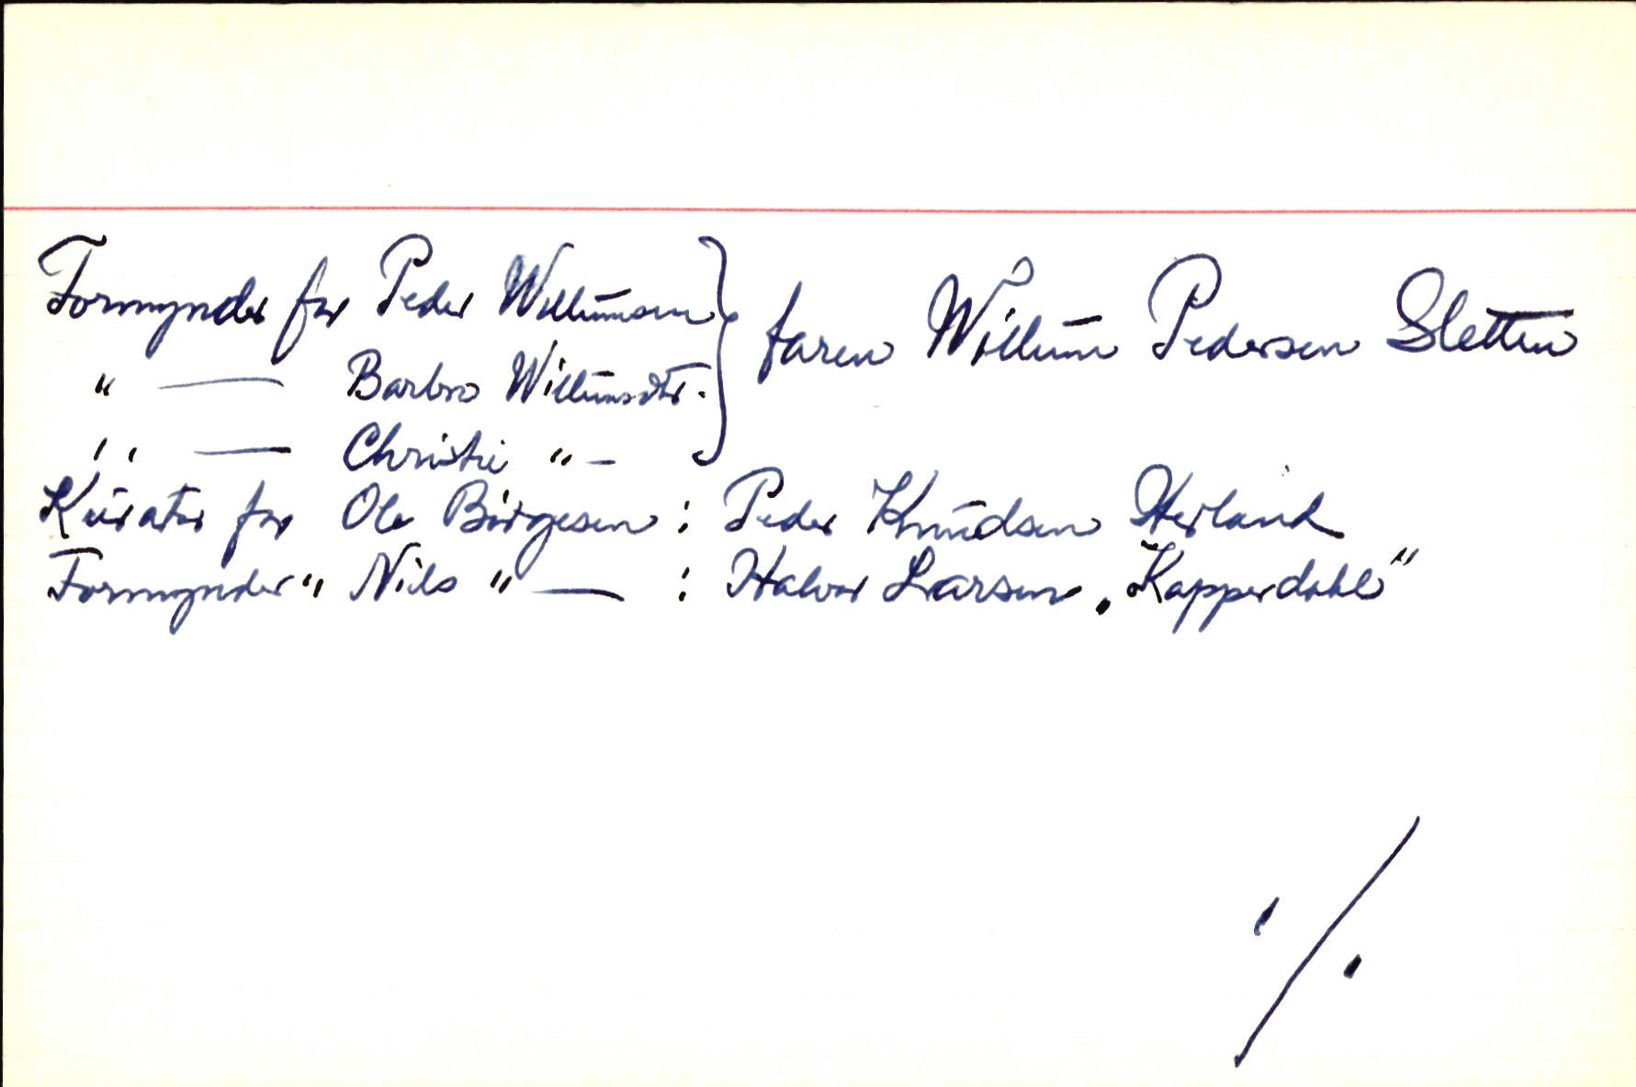 Formynder for Peder Willumsen } faren Willum Pedersen Sletten
" — Barbro Willumsdtr.
" — Christi " —
Kurator for Ole Børgesen : Peder Knudsen Herland
Formynder " Nils " — : Halvor Larsen „Kapperdahl"
./.